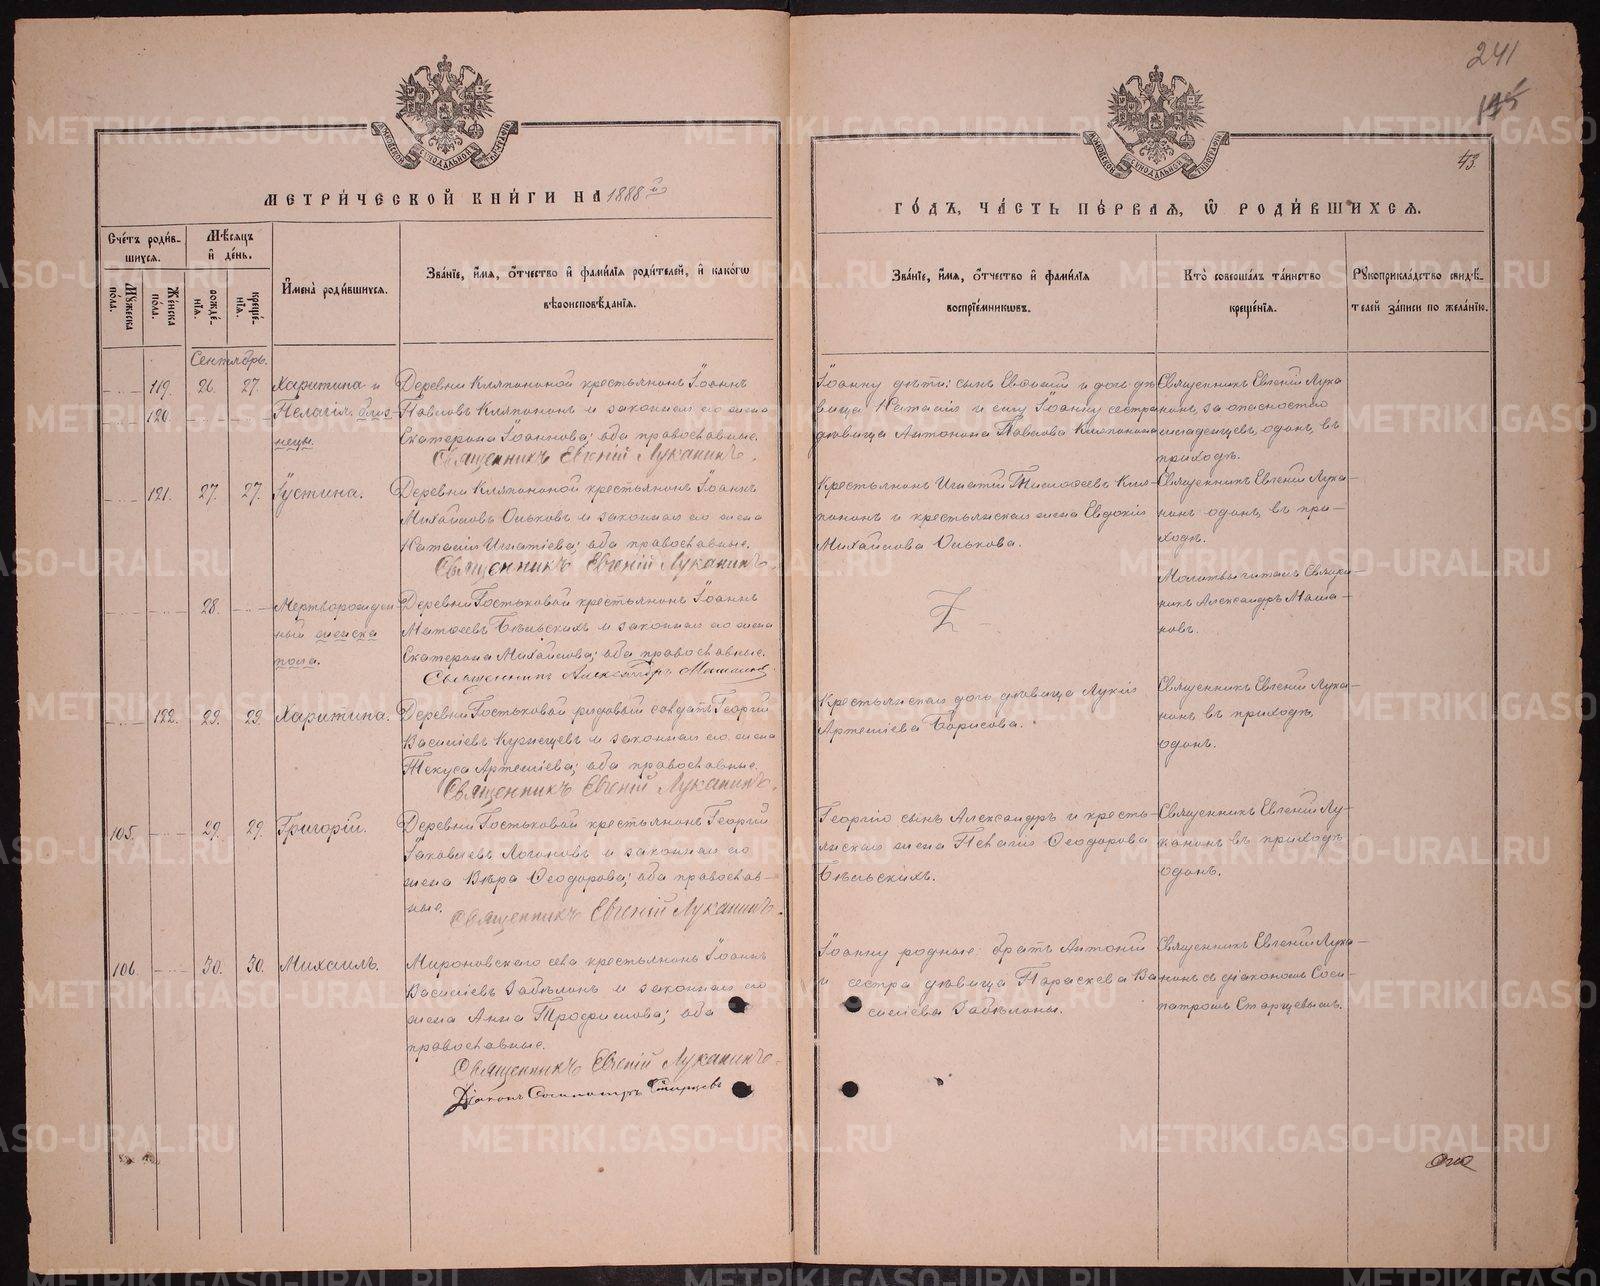 241
175
43.
МЕТРИ́ЧЕСКОЙ КНИ́ГИ НА 1888й
ГО́ДЪ, ЧА́СТЬ ПЕ́РВАЯ, Ѡ РОДИ́ВШИХСЯ.
Сче́тъ роди́вшихся.
Му́жеска по́ла.
Же́нска по́ла.
Мѣ́сяцъ и́ де́нь.
рожде́нїя.
креще́нїя.
И́мена̀ роди́вшихся.
Зва́нїе, и́мя, ѻ́тчество и́ фами́лїя роди́телей, и́ како́гѡ
вѣроисповѣ́данїя.
Зва́нїе, и́мя, ѻ́тчество и́ фами́лїя
воспрїе́мникѡвъ.
Кто̀ соверша́лъ та́инство
креще́нїя.
Рꙋкоприкла́дство свидѣ́-
телей за́писи по жела́нїю.
Сентябрь.
119. 26. 27. Харитина и
120. Пелагія, близ-
нецы.
Деревни Кляпониной крестьянинъ Іоаннъ
Павловъ Кляпонинъ и законная его жена
Екатерина Іоаннова; оба православные.
Священникъ Евгеній Луканинъ.
Іоанну дѣти: сынъ Евѳимій и дочь дѣ-
вица Наталія и ему Іоанну сестра
дѣвица Антонина Павлова Кляпонина
Священникъ Евгеній Лука-
нинъ, за опасностію
младенцевъ, одинъ, въ
приходѣ.
121. 27. 27. Іустина.
Деревни Кляпониной крестьянинъ Іоаннъ
Михайловъ Оньковъ и законная его жена
Наталія Игнатіева; оба православные.
Священникъ Евгеній Луканинъ.
Крестьянинъ Игнатій Тимоѳеевъ Кля-
понинъ и крестьянская жена Евдокія
Михайлова Онькова.
Священникъ Евгеній Лука-
нинъ одинъ, въ при-
ходѣ.
28. Мертворожден-
ный женска
пола.
Деревни Гостьковой крестьянинъ Іоаннъ
Матѳеевъ Бѣльскихъ и законная его жена
Екатерина Михайлова; оба православные.
Священникъ Александръ Машановъ
Молитвы читалъ Священ-
никъ Александръ Маша-
новъ.
122. 29. 29. Харитина.
Деревни Гостьковой рядовый солдатъ Георгій
Василіевъ Кузнецовъ и законная его жена
Текуса Артеміева; оба православные.
Священникъ Евгеній Луканинъ.
Крестьянская дочь дѣвица Лукія
Артеміева Борисова.
Священникъ Евгеній Лука-
нинъ въ приходѣ,
одинъ.
105. 29. 29. Григорій.
Деревни Гостьковой крестьянинъ Георгій
Іаковлевъ Логиновъ и законная его
жена Вѣра Ѳеодорова; оба православ-
ные. Священникъ Евгеній Луканинъ.
Георгію сынъ Александръ и кресть-
янская жена Пелагія Ѳеодорова
Бѣльскихъ.
Священникъ Евгеній Лу-
канинъ въ приходѣ
одинъ.
106. 30. 30. Михаилъ.
Мироновскаго села крестьянинъ Іоаннъ
Василіевъ Забѣлинъ и законная его
жена Анна Трофимова; оба
православные.
Священникъ Евгеній Луканинъ.
Діаконъ Сосипатръ Старцевъ
Іоанну родные: братъ Антоній
и сестра дѣвица Параскева Ва-
силіевы Забѣлины.
Священникъ Евгеній Лука-
нинъ съ діакономъ Соси-
патромъ Старцевымъ.
METRIKI.GASO-URAL.RU